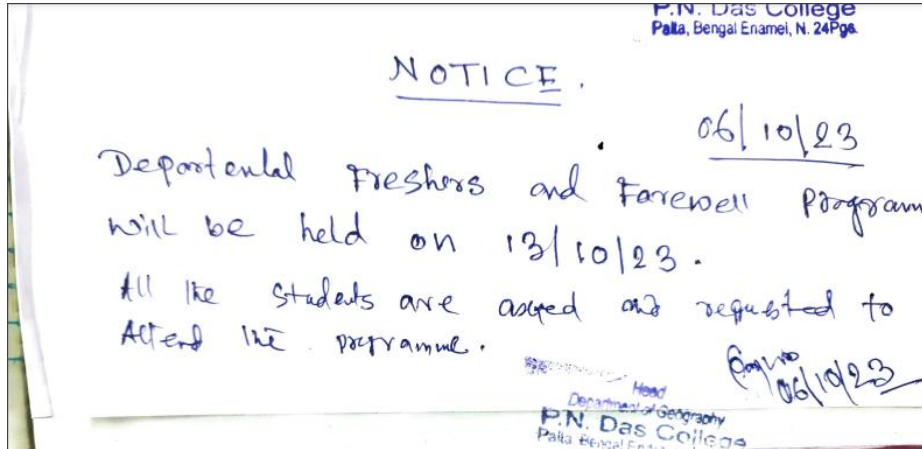 P.N. Das College
Palta, Bengal Enamel, N. 24Pgs.
NOTICE.
06/10/23
Departental Freshers and Farewell Program
will be held on 13/10/23.
All the students are and requested to
Attend the programme.
06/10/23
Head
Department of Geography
P.N. Das College
Palta Bengal